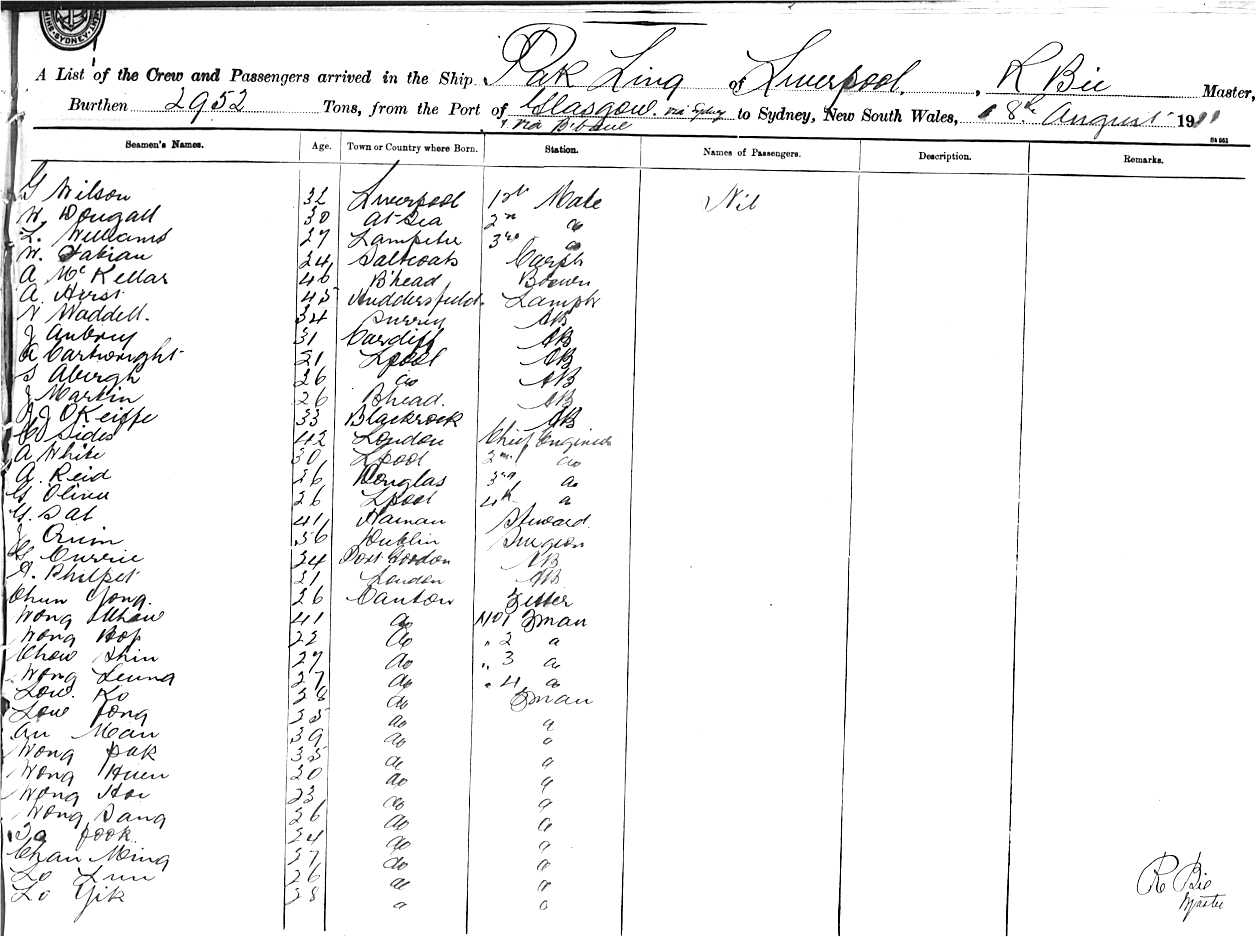 A List of the Crew and Passengers arrived in the Ship Pak Ling of Liverpool, R Bie Master,
Burthen 2952 Tons, from the Port of Glasgow via Sydney to Sydney, New South Wales, 8th August 1911
& via B'bane
Seamen's Names. Age. Town or Country where Born. Station. Names of Passengers. Description. Remarks.
G Wilson 32 Liverpool 1st Mate Nil
W. Dougall 30 At Sea 2nd do
L. Williams 27 Lampeter 3rd do
W. Fabian 24 Saltcoats Carptr
A McKellar 46 B'head Bosun
A. Hirst 45 Huddersfield Lamptr
Waddell. 34 Surrey AB
J Aubrey 31 Cardiff AB
A Cartwright 21 Lpool AB
S Abergh 26 do AB
J Martin 26 Bhead. AB
J J O'Keiffe 33 Blackrock AB
C Sides 42 London Chief Engineer
A White 30 Lpool 2nd do
A. Reid 26 Douglas 3rd do
G. Oliver 26 Lpool 4th do
G. Sat 41 Hainan Steward.
J 56 Dublin Surgeon
G Currie 34 Port Gordon AB
Philpot 21 London AB
Chun Yong. 26 Canton Fitter
Wong 41 do No 1 Fman
Wong Hop 22 do " 2 do
Chow Shin 27 do " 3 do
Wong Leung 27 do " 4 do
Low. Ko 38 do Fman
Low Fong 35 do do
Au Man 39 do do
Wong Pak 35 do do
Wong Huen 30 do do
Wong Hoi 23 do do
Wong Sang 26 do do
Fook. 24 do do
Chan Ming 27 do do
Lo Lun 26 do do
Lo Yik 38 do do
R Bie
Master